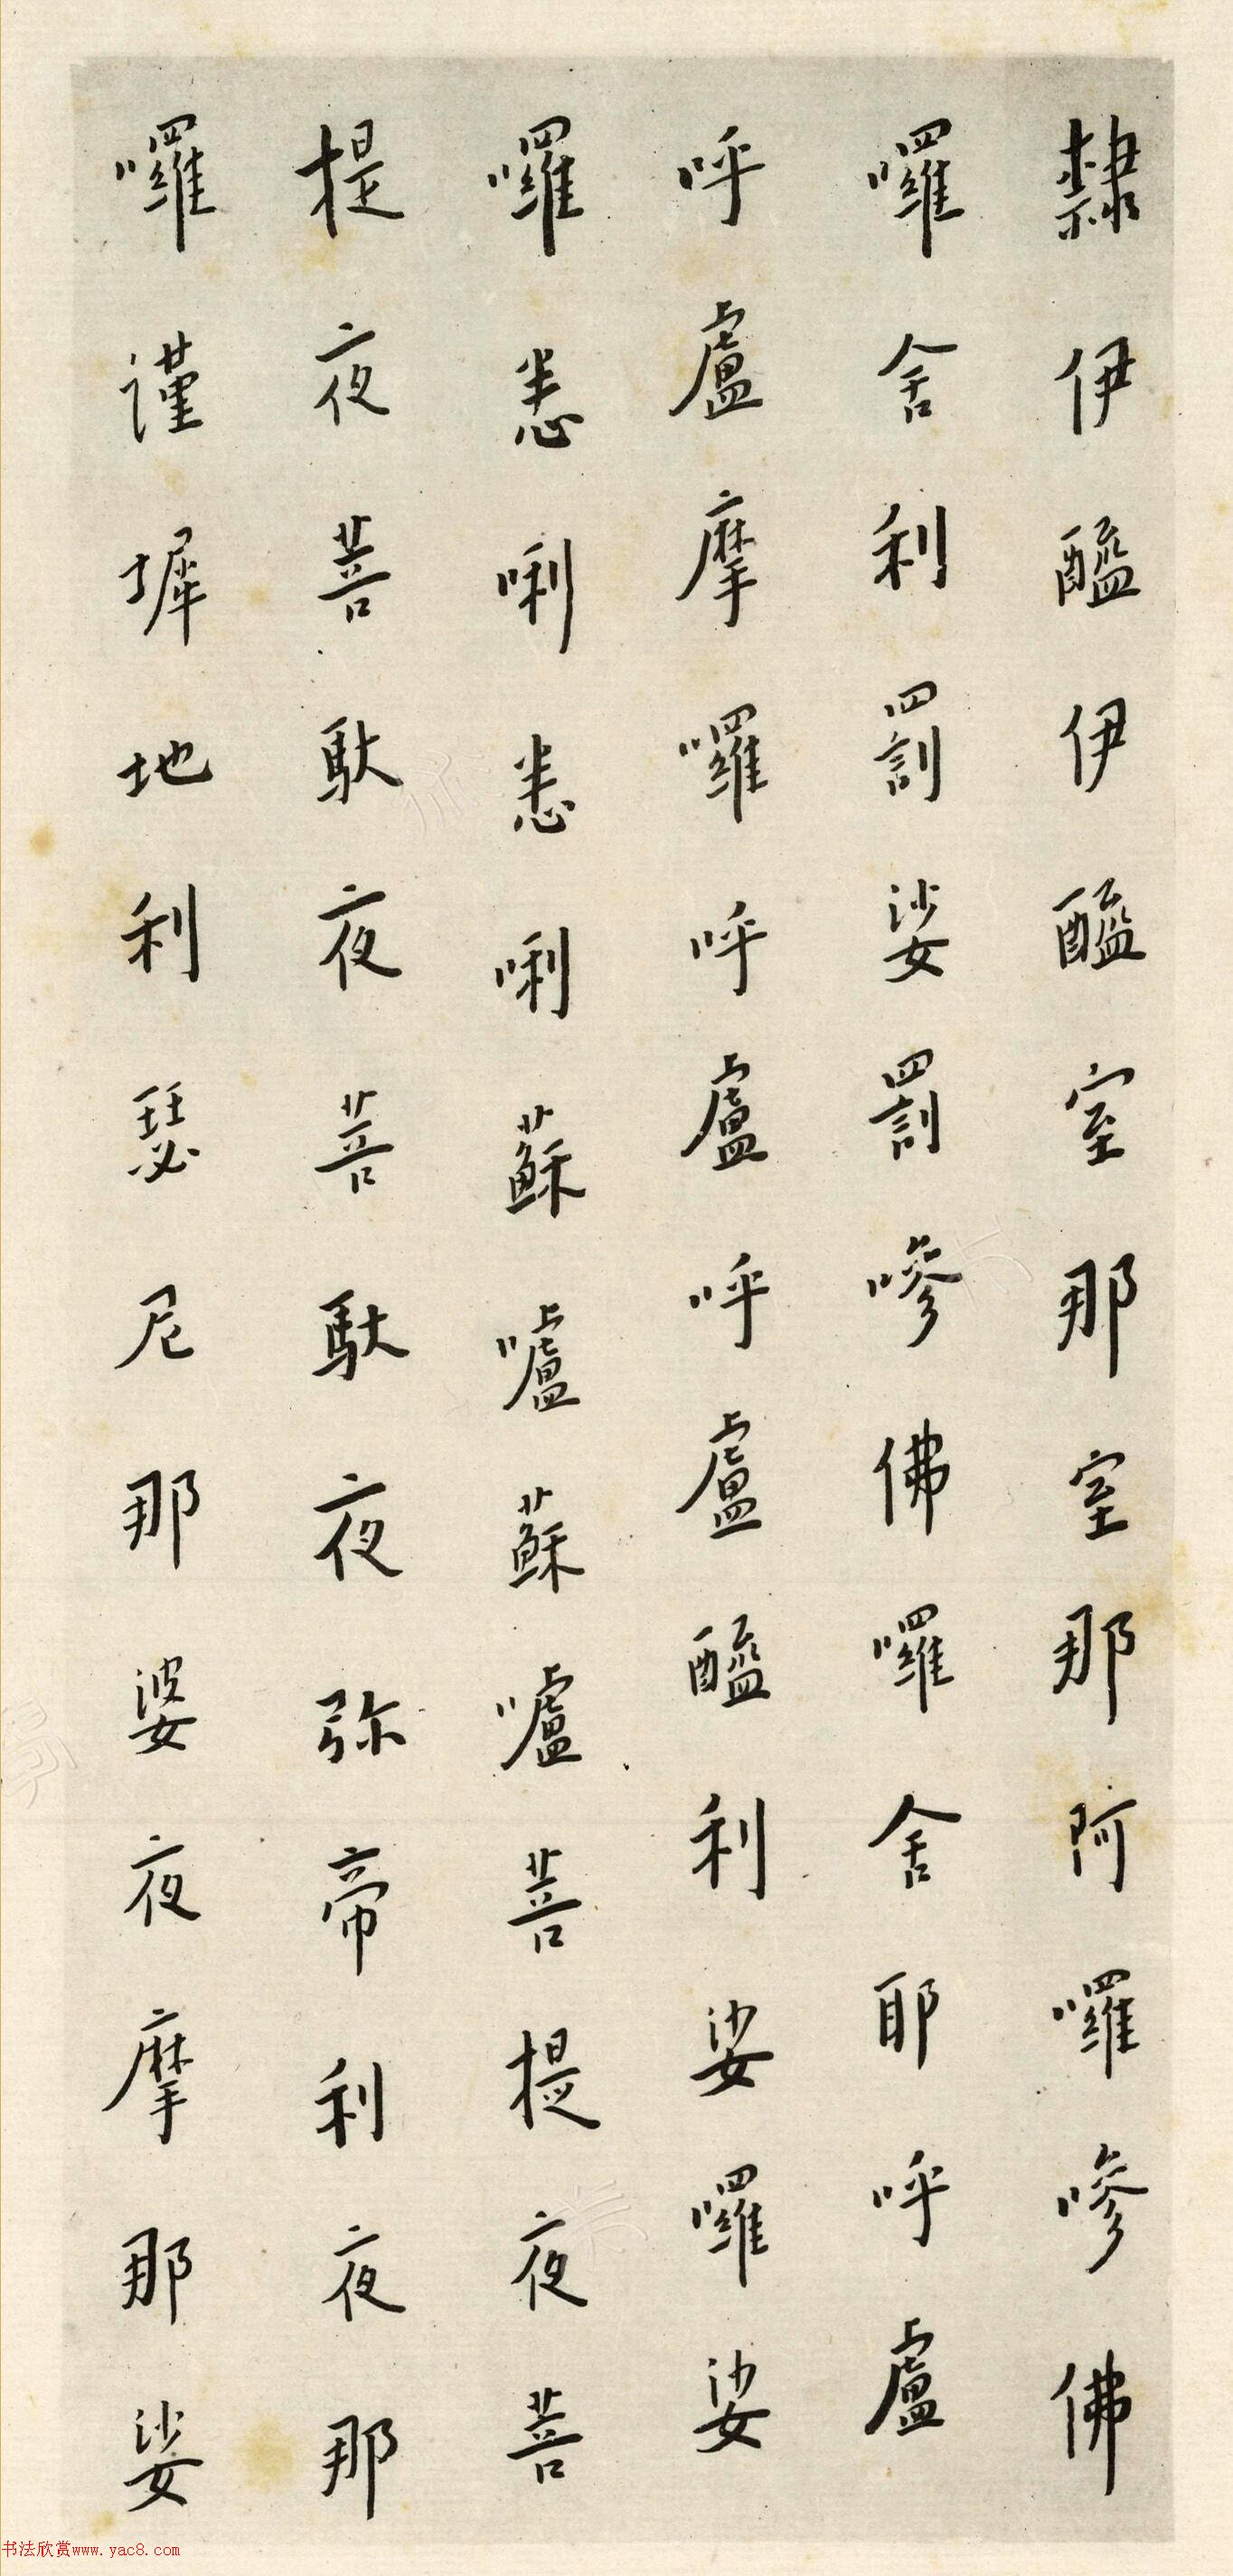 隸伊醯伊醯室那室那阿囉嘇佛
囉舍利罰娑罰嘇佛囉舍耶呼盧
呼盧摩囉呼盧呼盧醯利娑囉娑
囉悉唎悉唎蘇嚧蘇嚧菩提夜菩
提夜菩馱夜菩馱夜弥帝利夜那
囉謹墀地利瑟尼那婆夜摩那娑
书法欣赏www.yac8.com